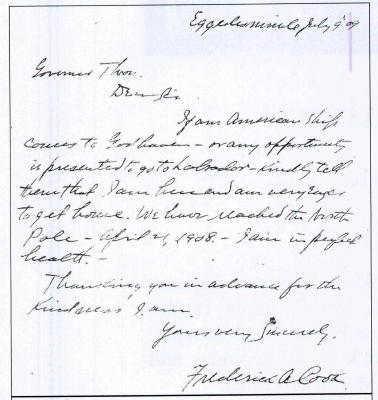 July 9 '09
Governor Thron.
Dear Sir.
If an American Ship
comes to Godhaven - or any opportunity
is presented to go to Labrador - Kindly tell
them that I am here and am very eager
to get home. We have reached the North
Pole - April 21, 1908. - I am in perfect
health. -
Thanking you in advance for the
Kindness I am.
Yours very Sincerely,
Frederick A. Cook